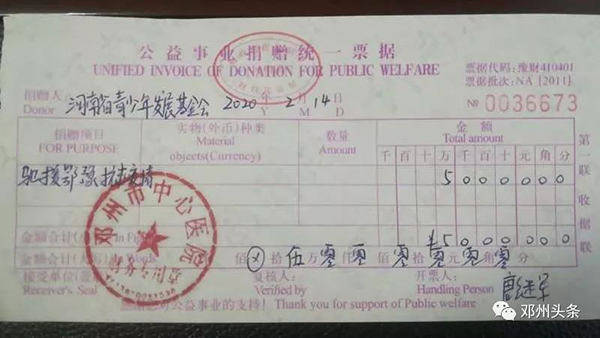 公益事业捐赠统一票据
UNIFIED INVOICE OF DONATION FOR PUBLIC WELFARE
票据代码:豫财410401
票据批次:NA [2011]
捐赠人: 河南省青少年发展基金会 2020年 2月 14日
Donor Y M D
№ 0036673
捐赠项目 实物(外币)种类 数量 金额
FOR PURPOSE Material objects(Currency) Amount Total amount
千 百 十 万 千 百 十 元 角 分
驰援鄂豫抗击疫情 5 0 0 0 0 0 0
金额合计(小写)In Figures ¥5 0 0 0 0 0 0
金额合计(大写)In Words 佰 ⊗ 拾 伍 万 零 仟 零 佰 零 拾 零 元 零 角 零 分
接受单位(盖章) 复核人: 开票人:
Receiver's Seal Verified by Handling Person
感谢您对公益事业的支持! Thank you for support of Public welfare
第一联 收据联
邓州市中心医院
财务专用章
邓州头条